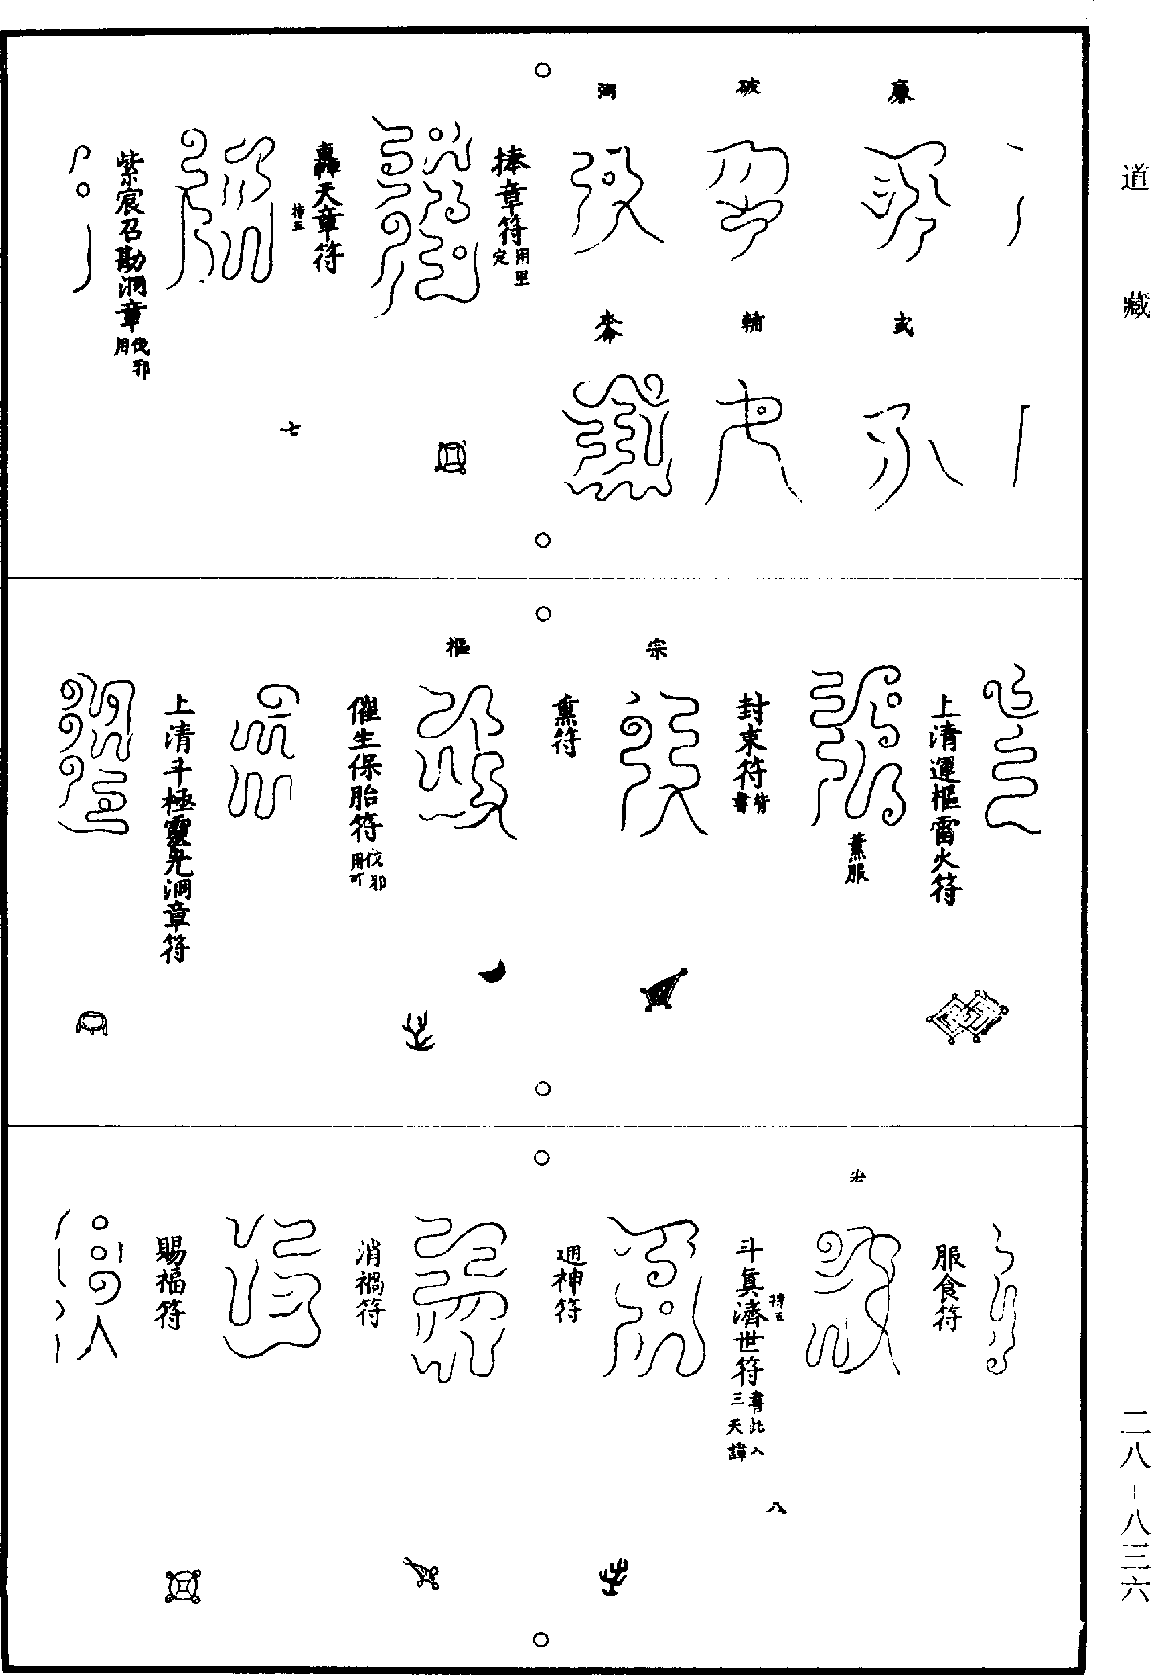 道藏
二八－八三六
廉
武
破
輔
捧章符
轟天章符
七
紫宸召勘洞章伐邪用
上清運樞雷火符
薰服
封束符
宗
熏符
樞
催生保胎符
上清斗極靈光洞章符
服食符
斗真濟世符書此入三天諱
八
通神符
消禍符
賜福符